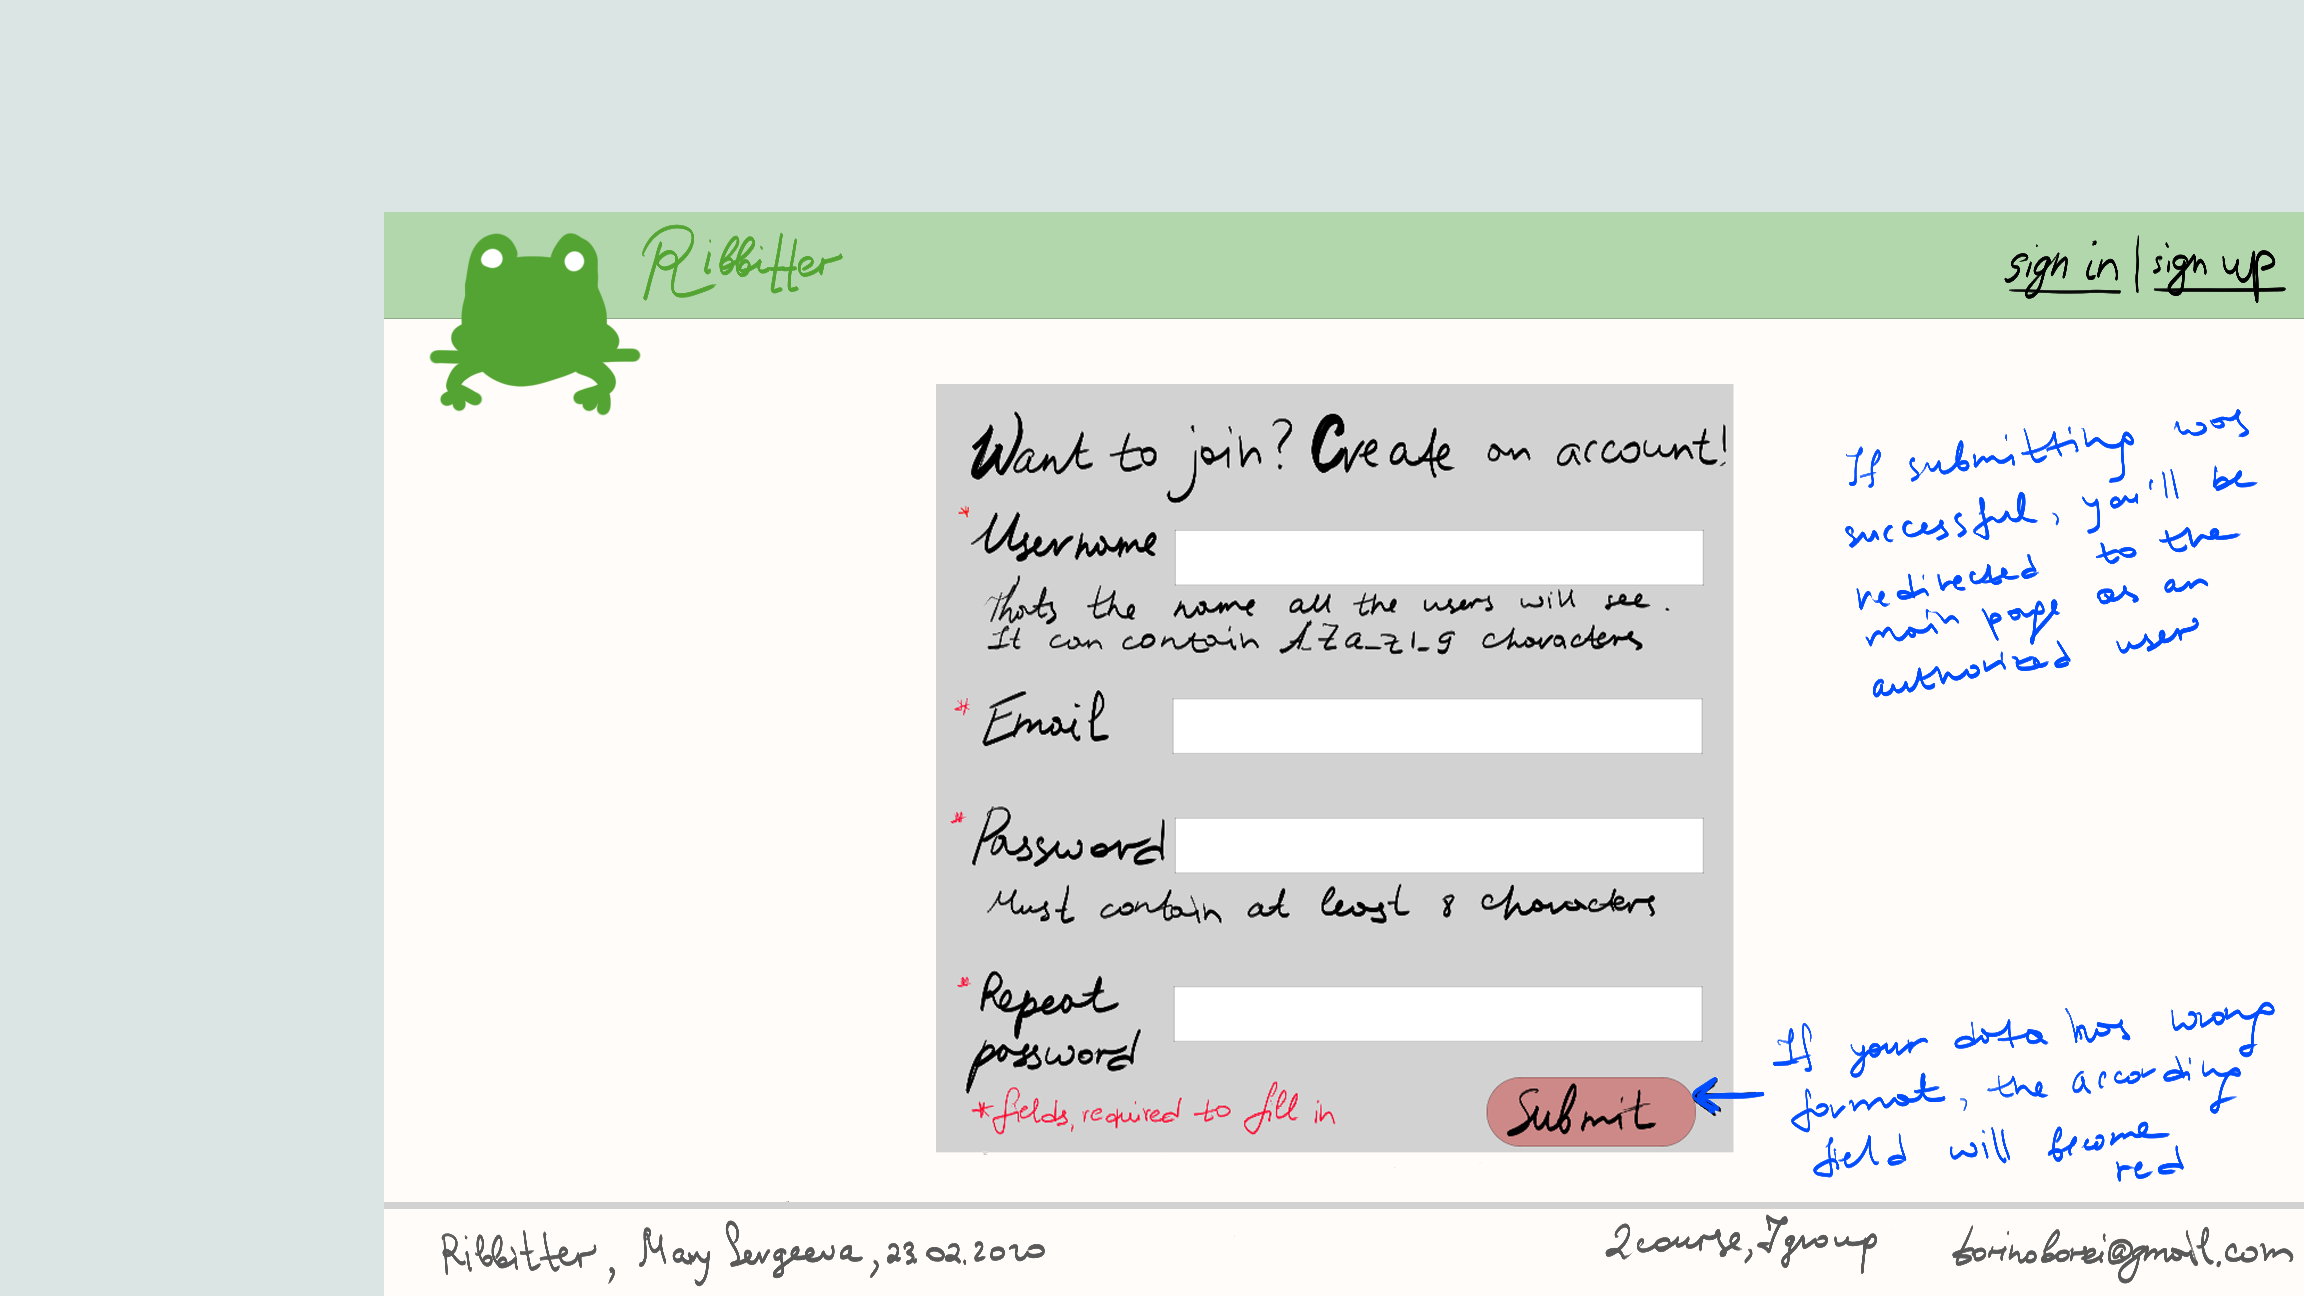 Ribbitter
sign in | sign up
Want to join? Create an account!
* Username
Thats the name all the users will see.
It can contain A_Z a_z 1_9 characters
* Email
* Password
Must contain at least 8 characters
* Repeat
password
*fields, required to fill in
Submit
If submitting was
successful, you'll be
redirected to the
main page as an
authorized user
If your data has wrong
format, the according
field will become
red
Ribbitter, Mary Sergeeva, 23.02.2020
2course, 7group
@gmail.com